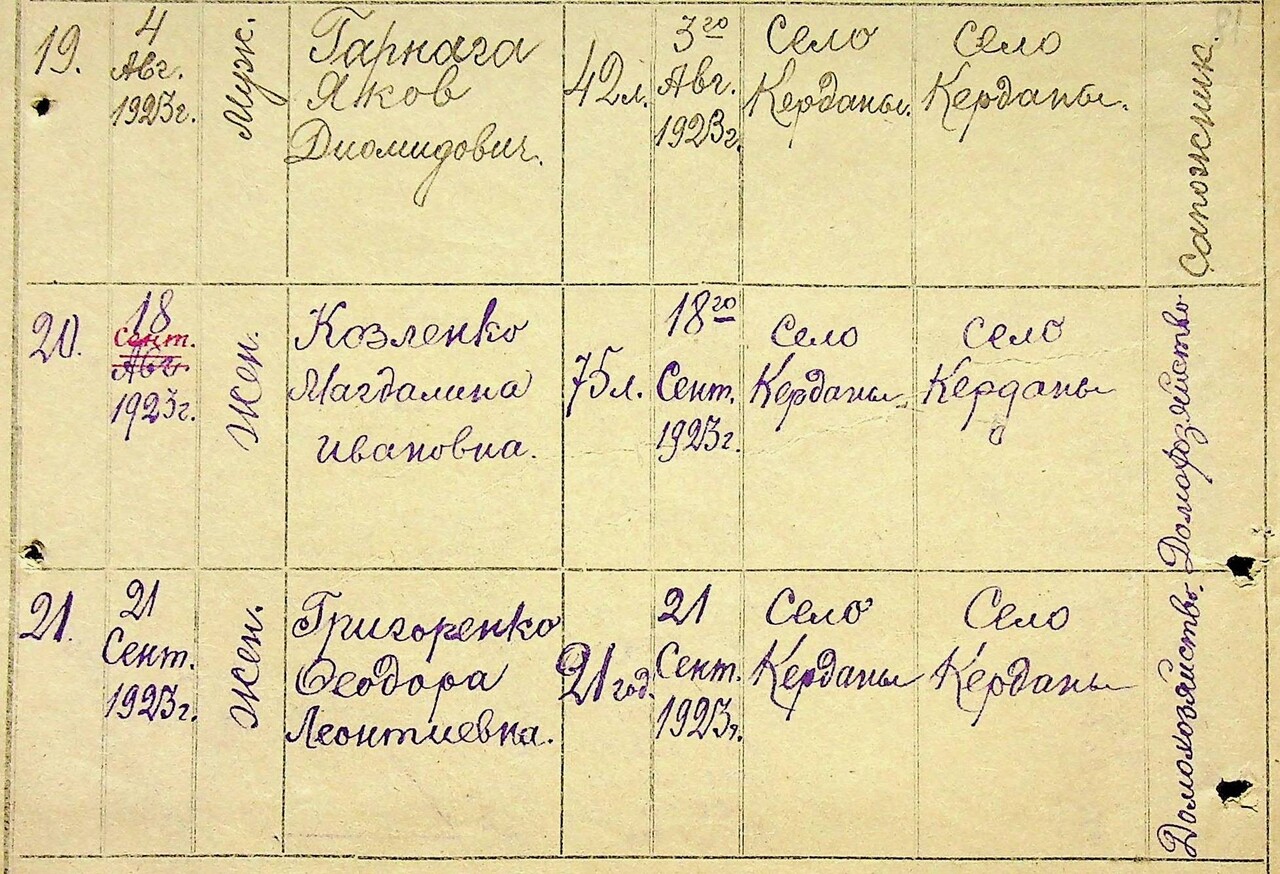 19.
4
Авг.
1923г.
Муж.
Гарнага
Яков
Диомидович.
42л.
3го
Авг.
1923г.
Село
Керданы.
Село
Керданы.
Сапожник.
20.
18
Сент.
Авг
1923г.
Жен.
Козленко
Магдалина
Ивановна.
75л.
18го
Сент.
1923г.
Село
Керданы
Село
Керданы
Домохозяйство
21.
21
Сент.
1923г.
Жен.
Григоренко
Феодора
Леонтиевна.
21 год.
21
Сент.
1923г.
Село
Керданы
Село
Керданы
Домохозяйство.